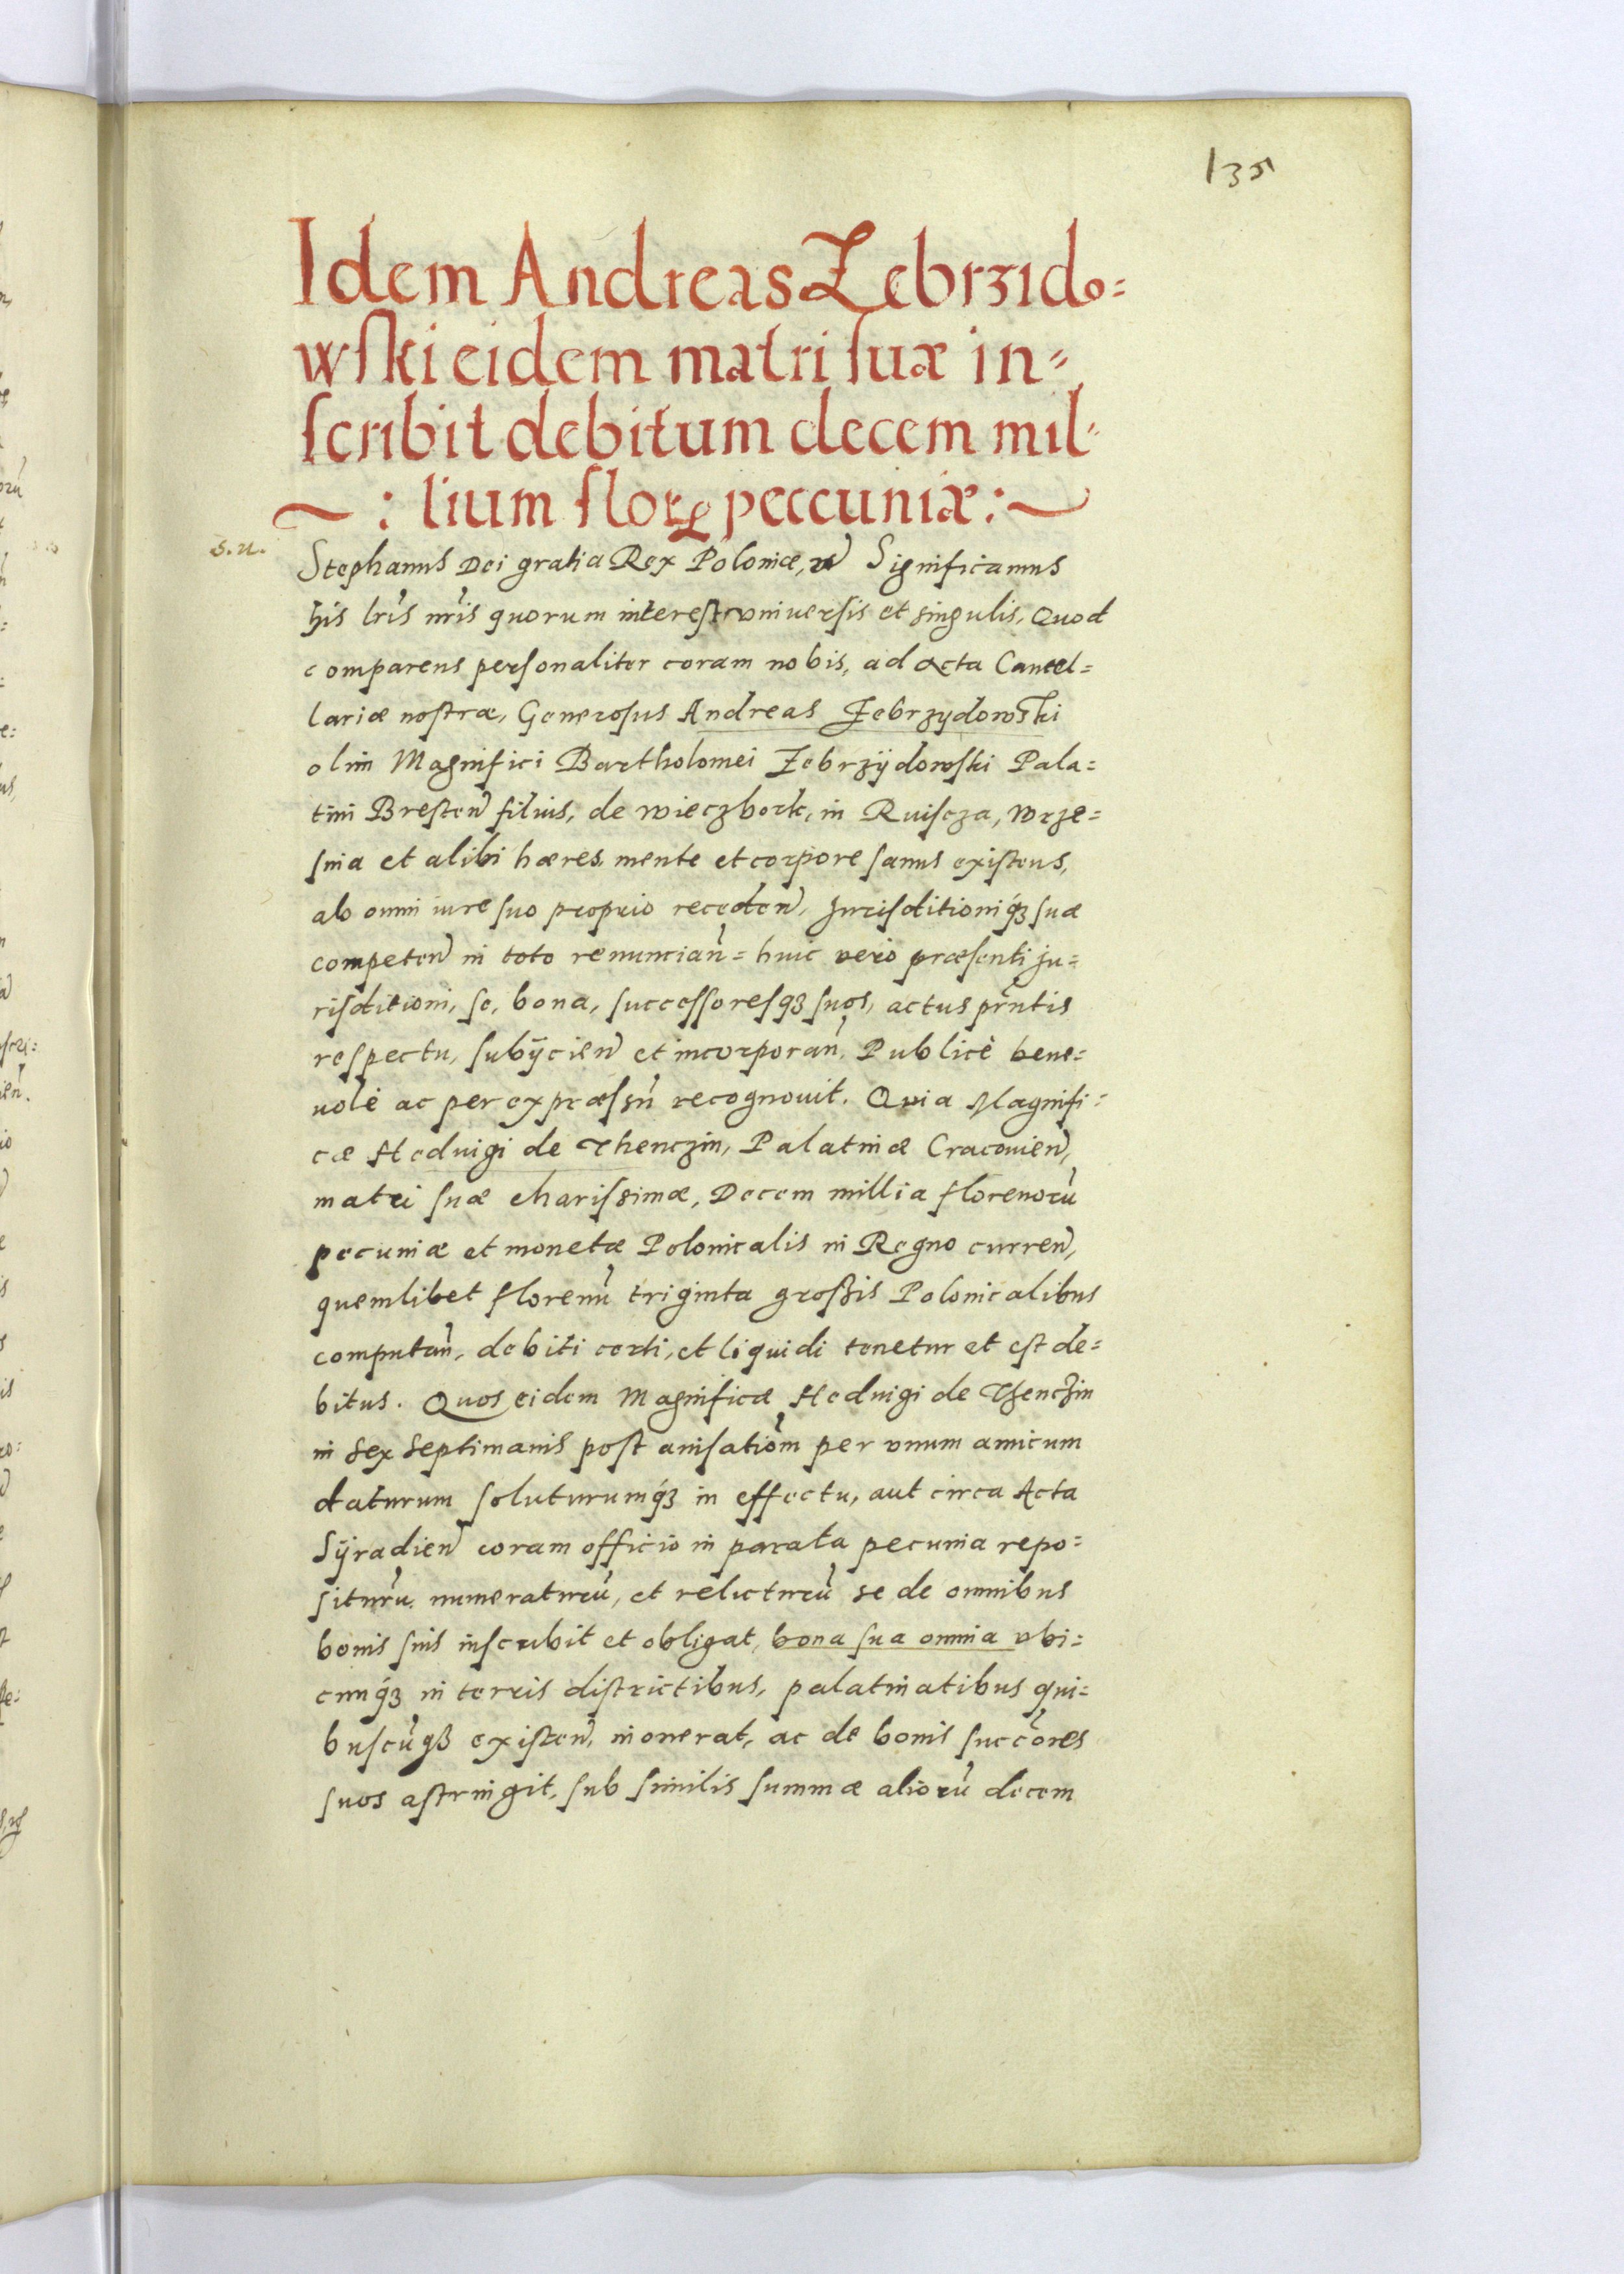 135
Idem Andreas Zebrzido=
wſki eidem matri ſuæ in=
ſcribit debitum decem mil=
: lium florꝝ peccuniæ :
S. u.
Stephanus Dei gratia Rex Poloniæ, Significamus
his lr̃is nr̃is quorum intereſt vniuerſis et singulis, Quod
comparens perſonaliter coram nobis, ad Acta Cancel=
lariæ noſtræ, Generoſus Andreas Zebrzydowſki
olim Magnifici Bartholomei Zebrzÿdowſki Pala=
tini Breſten̄ filius, de wieczbork, in Ruiſcza, Wrze=
ſnia et alibi hæres, mente et corpore ſanus exiſtens,
ab omni iure ſuo proprio receden̄, Juriſditioniqꝫ ſuæ
competen̄ in toto renuncian̄ = huic vero præſenti Ju=
riſditioni, ſe, bona, ſucceſſoreſqꝫ ſuos, actus pr̃ntis
reſpectu, ſubÿcien̄ et incorporan̄, Publicè bene=
uolè ac per expræſsū recognouit. Quia Magnifi=
cæ Heduigi de Thenczin, Palatinæ Cracouien̄,
matri ſuæ chariſsimæ, Decem millia florenorū
pecuniæ et monetæ Polonicalis in Regno curren̄,
quemlibet florenū triginta groſſis Polonicalibus
computan̄, debiti certi, et liquidi tenetur et eſt de=
bitus. Quos eidem Magnificæ Heduigi de Thenczin
in sex septimanis poſt auiſatiōm per vnum amicum
daturum ſoluturumqꝫ in effectu, aut circa Acta
Sÿradien̄ coram officio in parata pecunia repo=
ſiturū numeraturū, et relicturū se de omnibus
bonis ſuis inſcribit et obligat, bona ſua omnia vbi=
cunqꝫ in terris diſtrictibus, palatinatibus qui=
buſcūqꝫ exiſten̄, inonerat, ac de bonis ſuccōres
ſuos aſtringit, ſub ſimilis ſummæ aliorū decem